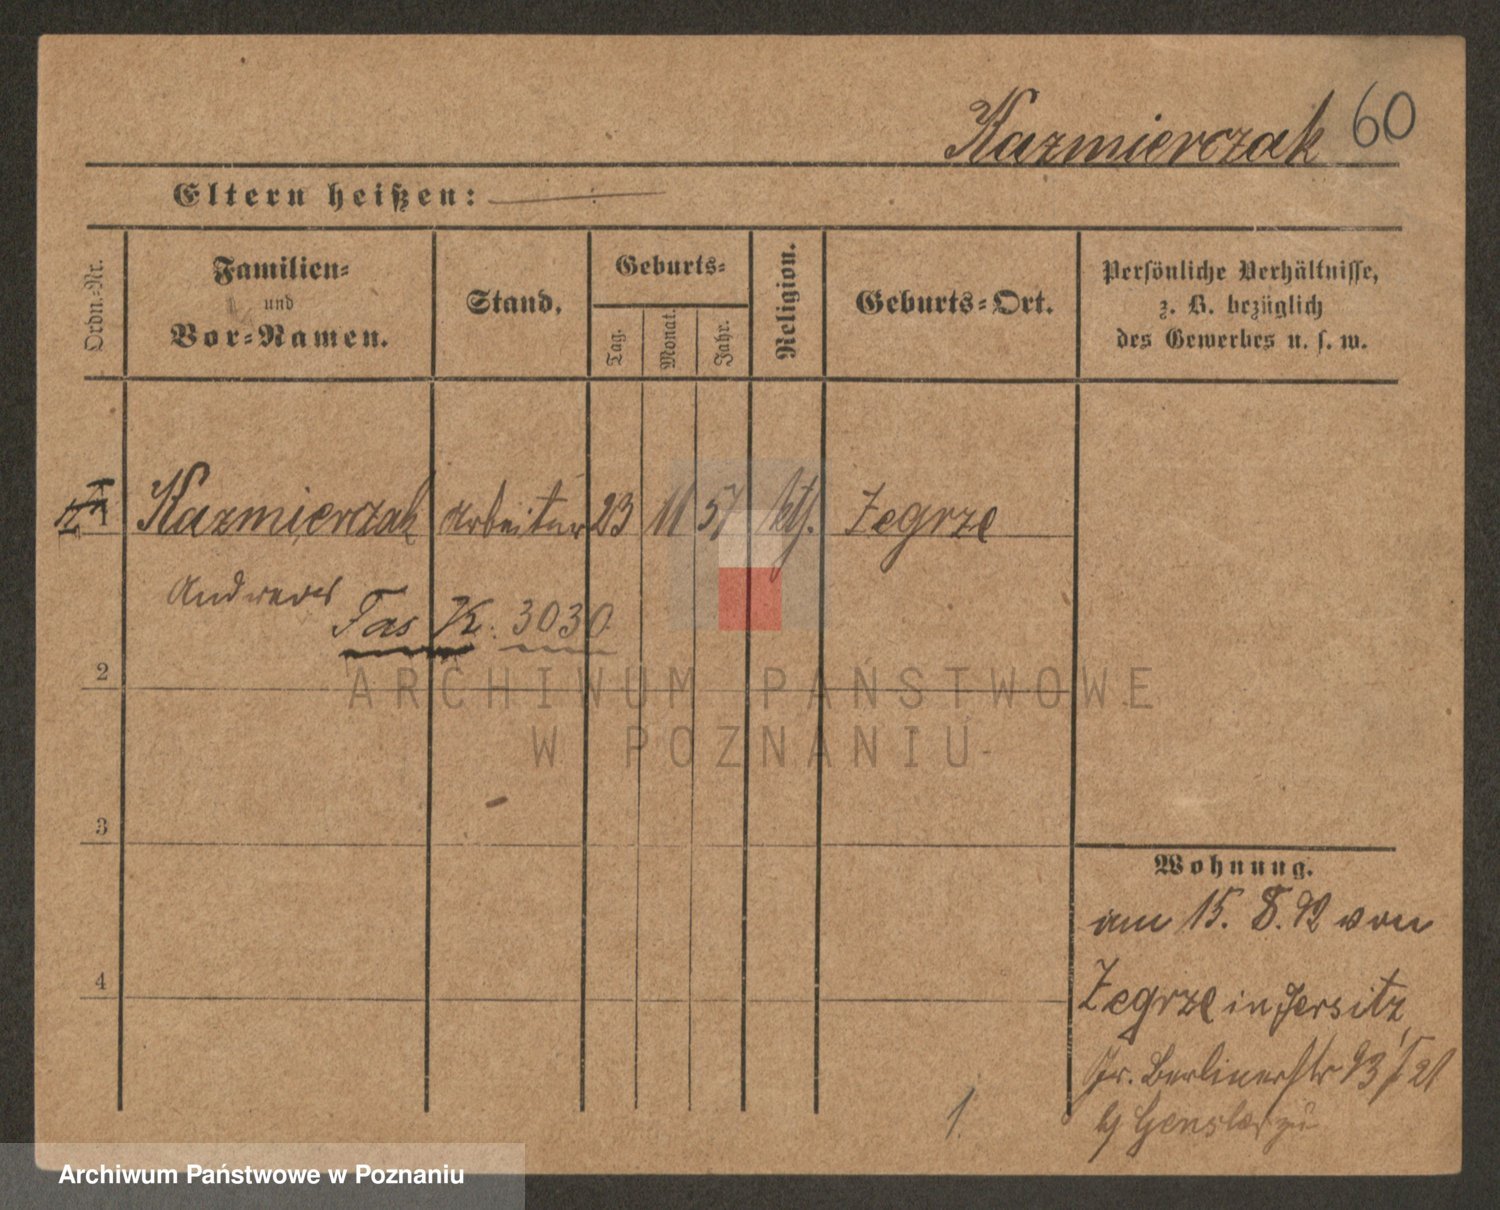 Kazmierczak 60
Eltern heißen:
Ordn.-Nr.
Familien-
und
Vor-Namen.
Stand.
Geburts-
Tag.
Monat.
Jahr.
Religion.
Geburts-Ort.
Persönliche Verhältnisse,
z. B. bezüglich
des Gewerbes u. s. w.
1 Kazmierczak Arbeiter 23 11 57 kth. Zegrze
Andreas
Fas K. 3030
2
ARCHIWUM PAŃSTWOWE
W POZNANIU
3
Wohnung.
am 15. 8. 92 von
Zegrze in Jersitz,
Gr. Berlinerstr 93
4
b/ Gensler zu
1.
Archiwum Państwowe w Poznaniu